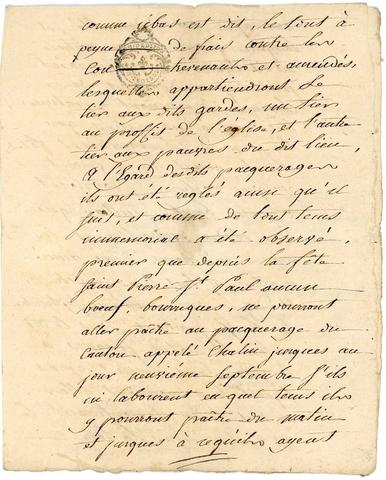 comme cebas est dit, le tout à
peyne de frais contre les
Contrevenants et amendés,
lesquelles appartiendront le
tier aux dits gardes, un tier
au proffit de l'église, et l'autre
tier aux pauvres du dit lieu,
A l'Egard desdits pacquerages
ils ont été reglés ainsi qu'il
suit, et comme de tout tems
immemorial a été observé,
premier que depuis la fête
Saint Pierre St Paul aucun
boeuf, bourriques, ne pourront
aller paître au pacquerage du
Canton appelé Chalin jusques au
jour neuxiéme Septembre s'ils
en labourent en quel tems ils
y pourront paître du matin
et jusques à requilis ayent